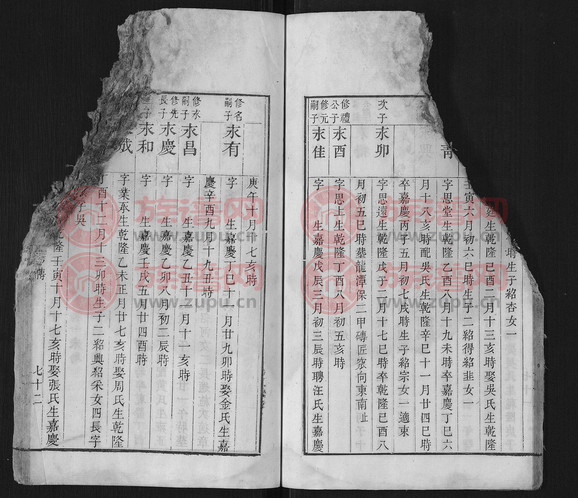 塒生子紹杏女一
生乾隆己酉月十三亥時娶吳氏生乾隆
壬寅六月初六巳時生子二紹得紹韭女一
青
字思堂生乾隆乙酉八月十九未時卒嘉慶丁巳六
月十八亥時配吳氏生乾隆辛巳十一月廿四巳時
卒嘉慶丙子五月初十戌時生子紹宗女一適東
次子
永卯
字思遠生乾隆戊子二月十七巳時卒乾隆己酉八
月初五巳時葬龍潭保二甲磚匠塝向東南
修禮公子
永酉
字思上生乾隆丁酉八月初五亥時
修元嗣子
永佳
字 生嘉慶戊辰三月初三辰時聘汪氏生嘉慶
庚午十月十七亥時
修名嗣子
永有
字 生嘉慶丁巳十一月廿九卯時娶金氏生嘉
慶辛酉九月十九五時
修水嗣子
永昌
字 生嘉慶乙丑十二月十一亥時
修先長子
永慶
字 生嘉慶乙卯八月十一亥時
子
永和
字 生嘉慶壬戌五月廿四酉時
成
字業永生乾隆乙未正月廿七亥時娶周氏生乾隆
丁酉十二月十三卯時生子二紹奧紹采女四長字
字吳
隆壬寅十月十七亥時娶張氏生嘉慶
七十二
族譜网
www.zupu.cn
族譜网
www.zupu.cn
族譜网
www.zupu.cn
族譜网
www.zupu.cn